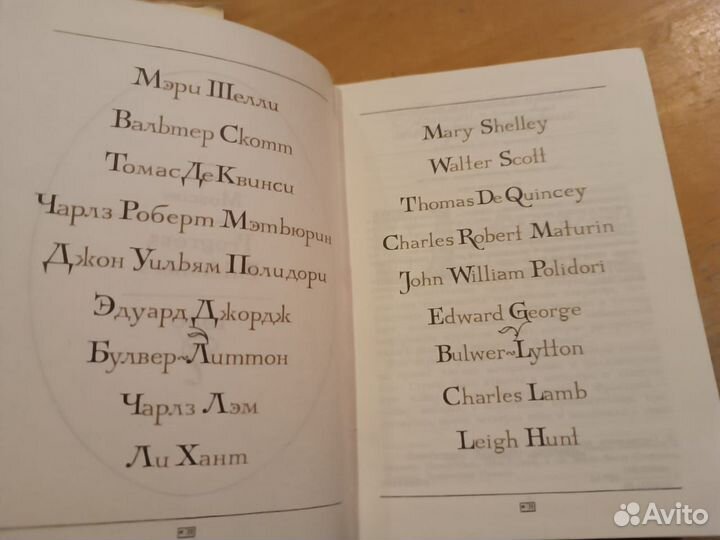 Мэри Шелли
Вальтер Скотт
Томас Де Квинси
Чарлз Роберт Мэтьюрин
Джон Уильям Полидори
Эдуард Джордж
Булвер-Литтон
Чарлз Лэм
Ли Хант
Mary Shelley
Walter Scott
Thomas De Quincey
Charles Robert Maturin
John William Polidori
Edward George
Bulwer-Lytton
Charles Lamb
Leigh Hunt
Avito